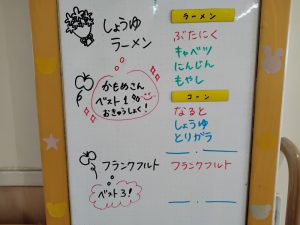 しょうゆ
ラーメン
かもめさん
ベスト1
おきゅうしょく!
フランクフルト
ベスト3!
ラーメン
ぶたにく
キャベツ
にんじん
もやし
コーン
なると
しょうゆ
とりガラ
フランクフルト